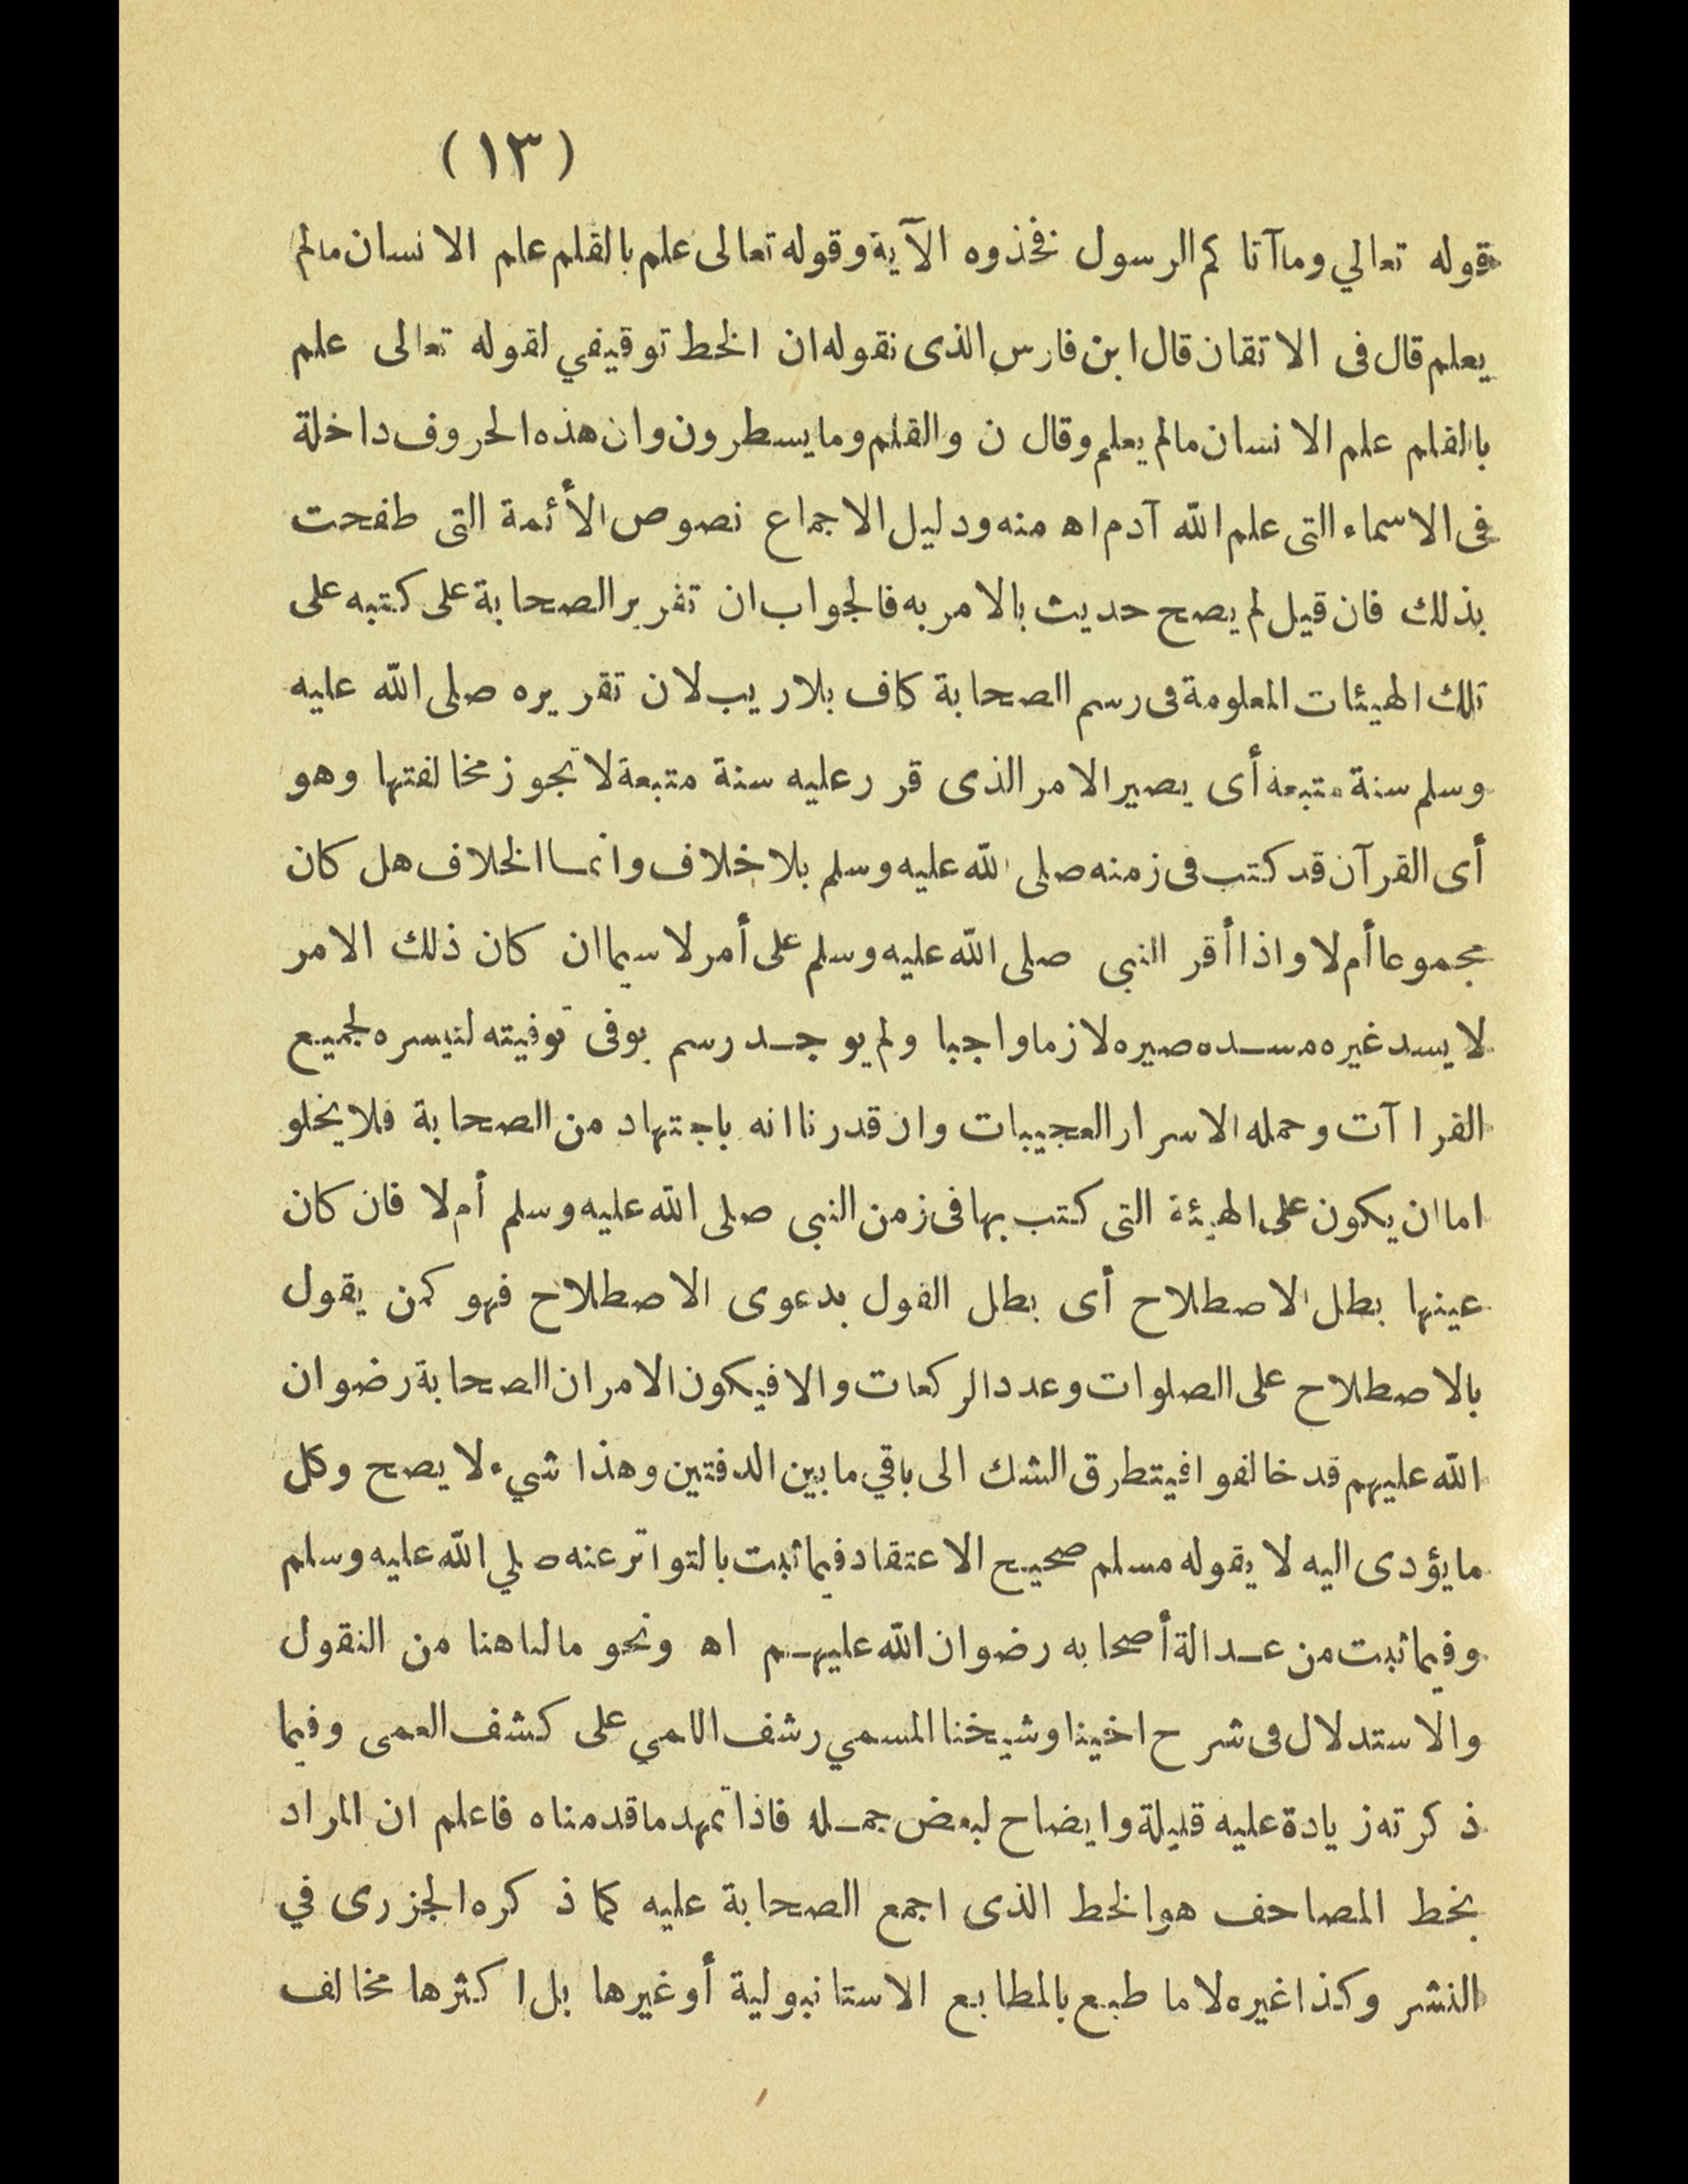 (١٣)
قوله تعالي وما آتا كم الرسول فخذوه الآية وقوله تعالى علم بالقلم علم الانسان مالم
يعلم قال فى الاتقان قال ابن فارس الذى نقوله ان الخط توقيفي لقوله تعالى علم
بالقلم علم الانسان مالم يعلم وقال ن والقلم وما يسطرون وان هذه الحروف داخلة
فى الاسماء التى علم الله آدم اه منه ودليل الاجماع نصوص الأئمة التى طفحت
بذلك فان قيل لم يصح حديث بالامر به فالجواب ان تقرير الصحابة على كتبه على
تلك الهيئات المعلومة فى رسم الصحابة كاف بلاريب لان تقريره صلى الله عليه
وسلم سنة متبعة أى يصير الامر الذى قرر عليه سنة متبعة لا تجوز مخالفتها وهو
أى القرآن قد كتب فى زمنه صلى الله عليه وسلم بلا خلاف وانمــا الخلاف هل كان
مجموعا أم لا واذا أقر النبى صلى الله عليه وسلم على أمر لا سيما ان كان ذلك الامر
لا يسد غيره مســده صيره لازما واجبا ولم يوجــد رسم يوفى توفيته لتيسره لجميع
القراآت وحمله الاسرار العجيبات وان قدرنا انه باجتهاد من الصحابة فلا يخلو
اما ان يكون على الهيئة التى كتب بها فى زمن النبى صلى الله عليه وسلم أم لا فان كان
عينها بطل الاصطلاح أى بطل القول بدعوى الاصطلاح فهو كمن يقول
بالاصطلاح على الصلوات وعدد الركعات والا فيكون الامر ان الصحابة رضوان
الله عليهم قد خالفوا فيتطرق الشك الى باقي ما بين الدفتين وهذا شيء لا يصح وكل
ما يؤدى اليه لا يقوله مسلم صحيح الاعتقاد فيما ثبت بالتواتر عنه صلي الله عليه وسلم
وفيما ثبت من عــدالة أصحابه رضوان الله عليهــم اه ونحو مالنا هنا من النقول
والاستدلال فى شرح اخينا وشيخنا المسمي رشف اللمي على كشف العمى وفيما
ذكرته زيادة عليه قليلة وايضاح لبعض جمــله فاذا تمهد ما قدمناه فاعلم ان المراد
بخط المصاحف هو الخط الذى اجمع الصحابة عليه كما ذكره الجزرى في
النشر وكذا غيره لا ما طبع بالمطابع الاستانبولية أو غيرها بل اكثرها مخالف